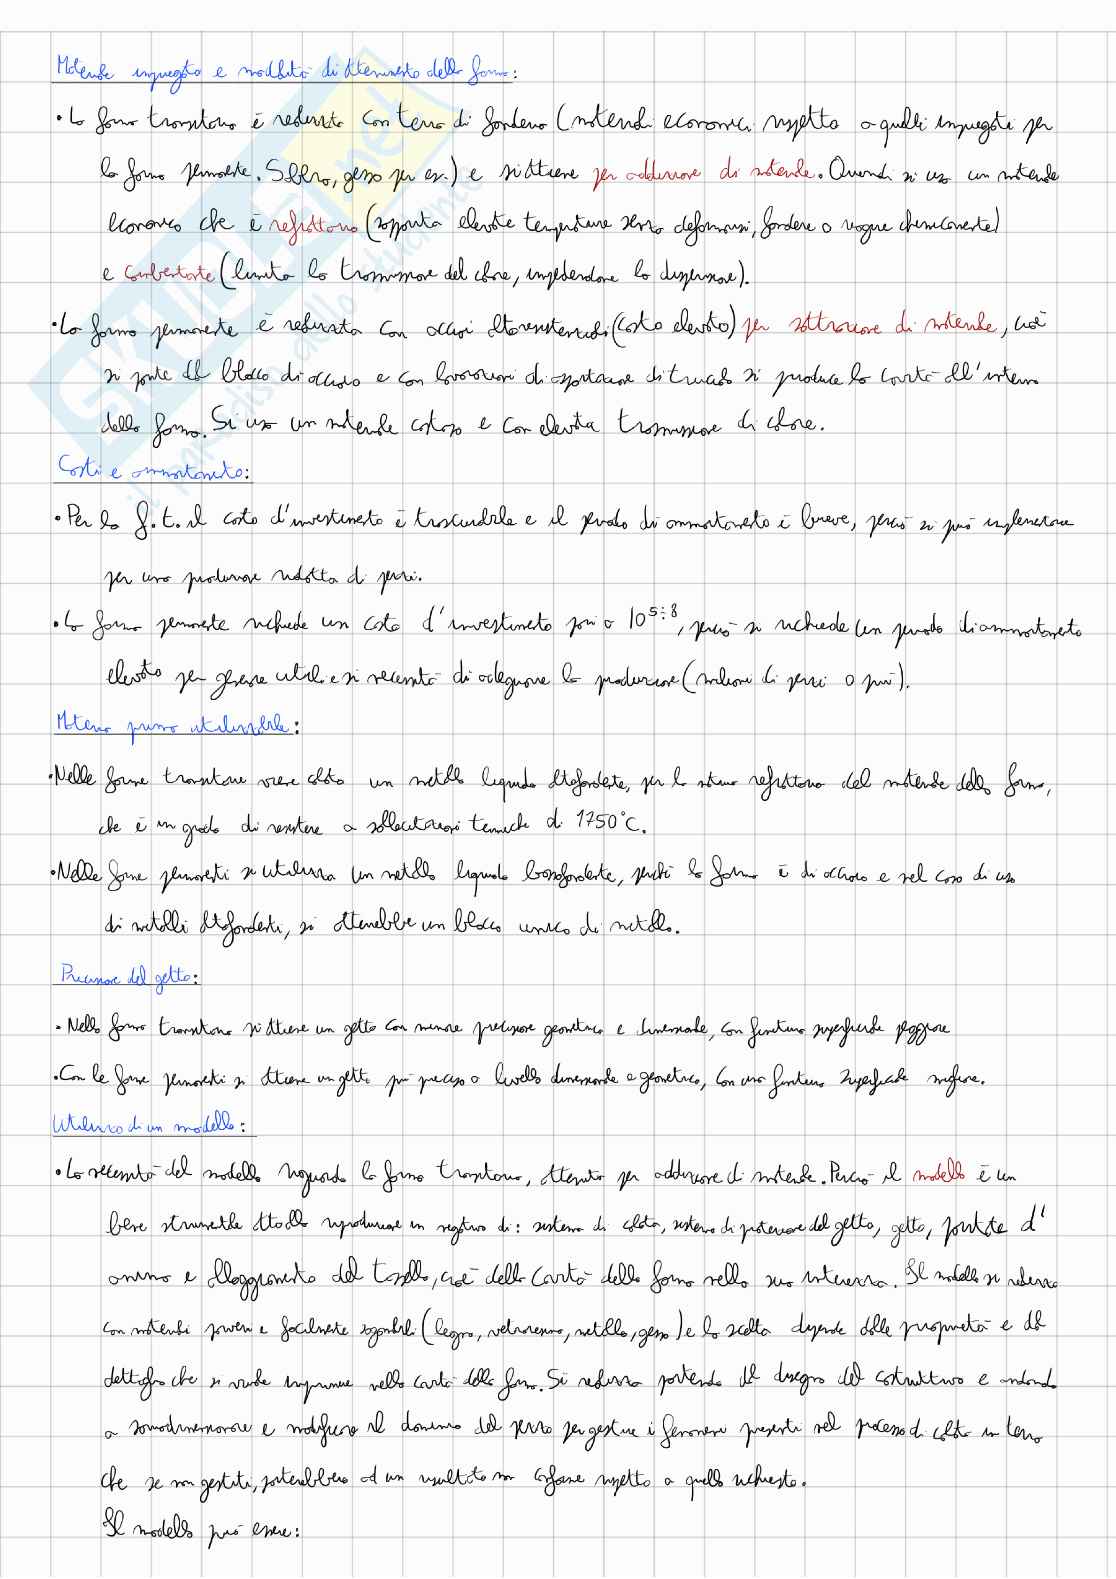 Materiale impiegato e modalità di ottenimento della forma:
• La forma transitoria è realizzata con terra di fonderia (materiali economici rispetto a quelli impiegati per
la forma permanente. Sabbia, gesso per es.) e si ottiene per adduzione di materiale. Quindi si usa un materiale
economico che è refrattario (sopporta elevate temperature senza deformarsi, fondere o reagire chimicamente)
e coibentante (limita la trasmissione del calore, impedendone la dispersione).
• La forma permanente è realizzata con acciai altoresistenziali (costo elevato) per sottrazione di materiale, cioè
si parte dal blocco di acciaio e con lavorazioni di asportazione di truciolo si produce la cavità all'interno
della forma. Si usa un materiale costoso e con elevata trasmissione di calore.
Costi e ammortamento:
• Per la f.t. il costo d'investimento è trascurabile e il periodo di ammortamento è breve, perciò si può implementare
per una produzione ridotta di pezzi.
• La forma permanente richiede un costo d'investimento pari a 10^5÷8, perciò si richiede un periodo di ammortamento
elevato per generare utili e si necessita di adeguare la produzione (milioni di pezzi o più).
Materia prima utilizzabile:
• Nelle forme transitorie viene colato un metallo liquido altofondente, per la natura refrattaria del materiale della forma,
che è in grado di resistere a sollecitazioni termiche di 1750°C.
• Nelle forme permanenti si utilizza un metallo liquido bassofondente, perché la forma è di acciaio e nel caso di uso
di metalli altofondenti, si otterrebbe un blocco unico di metallo.
Precisione del getto:
• Nella forma transitoria si ottiene un getto con minore precisione geometrica e dimensionale, con finitura superficiale peggiore
• Con le forme permanenti si ottiene un getto più preciso a livello dimensionale e geometrico, con una finitura superficiale migliore.
Utilizzo di un modello:
• La necessità del modello riguarda la forma transitoria, ottenuta per adduzione di materiale. Perciò il modello è un
bene strumentale atto alla riproduzione in negativo di: sistema di colata, sistema di protezione del getto, getto, portate d'
anima e alloggiamento del tassello, cioè della cavità della forma nella sua interezza. Il modello si realizza
con materiali poveri e facilmente sagomabili (legno, vetroresina, metallo, gesso) e la scelta dipende dalle proprietà e dal
dettaglio che si vuole imprimere nella cavità della forma. Si realizza partendo dal disegno del costruttivo e andando
a sovradimensionare e modificare il dominio del pezzo per gestire i fenomeni presenti nel processo di colata in terra
che se non gestiti, porterebbero ad un risultato non conforme rispetto a quello richiesto.
Il modello può essere: